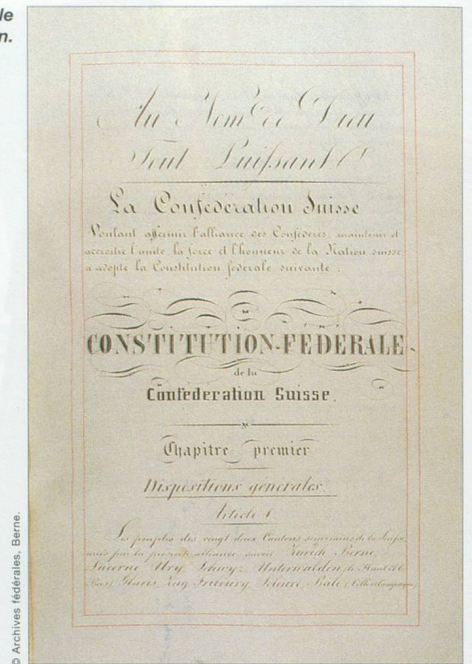 le
n.
Au Nom de Dieu
Tout Puissant!
La Confédération Suisse
Voulant affermir l'alliance des Confédérés, maintenir et
accroître l'unité la force et l'honneur de la Nation suisse
a adopté la Constitution fédérale suivante :
CONSTITUTION-FÉDÉRALE
de la
Confédération Suisse.
Chapitre premier
Dispositions générales
Article 1.
Les peuples des vingt deux Cantons souverains de la Suisse
unis par la présente alliance savoir Zurich Berne,
Lucerne Ury Schwyz Unterwalden, le Haut et le
Bas, Glaris, Zug Fribourg Soleure, Bâle, Ville et Campagne
© Archives fédérales, Berne.